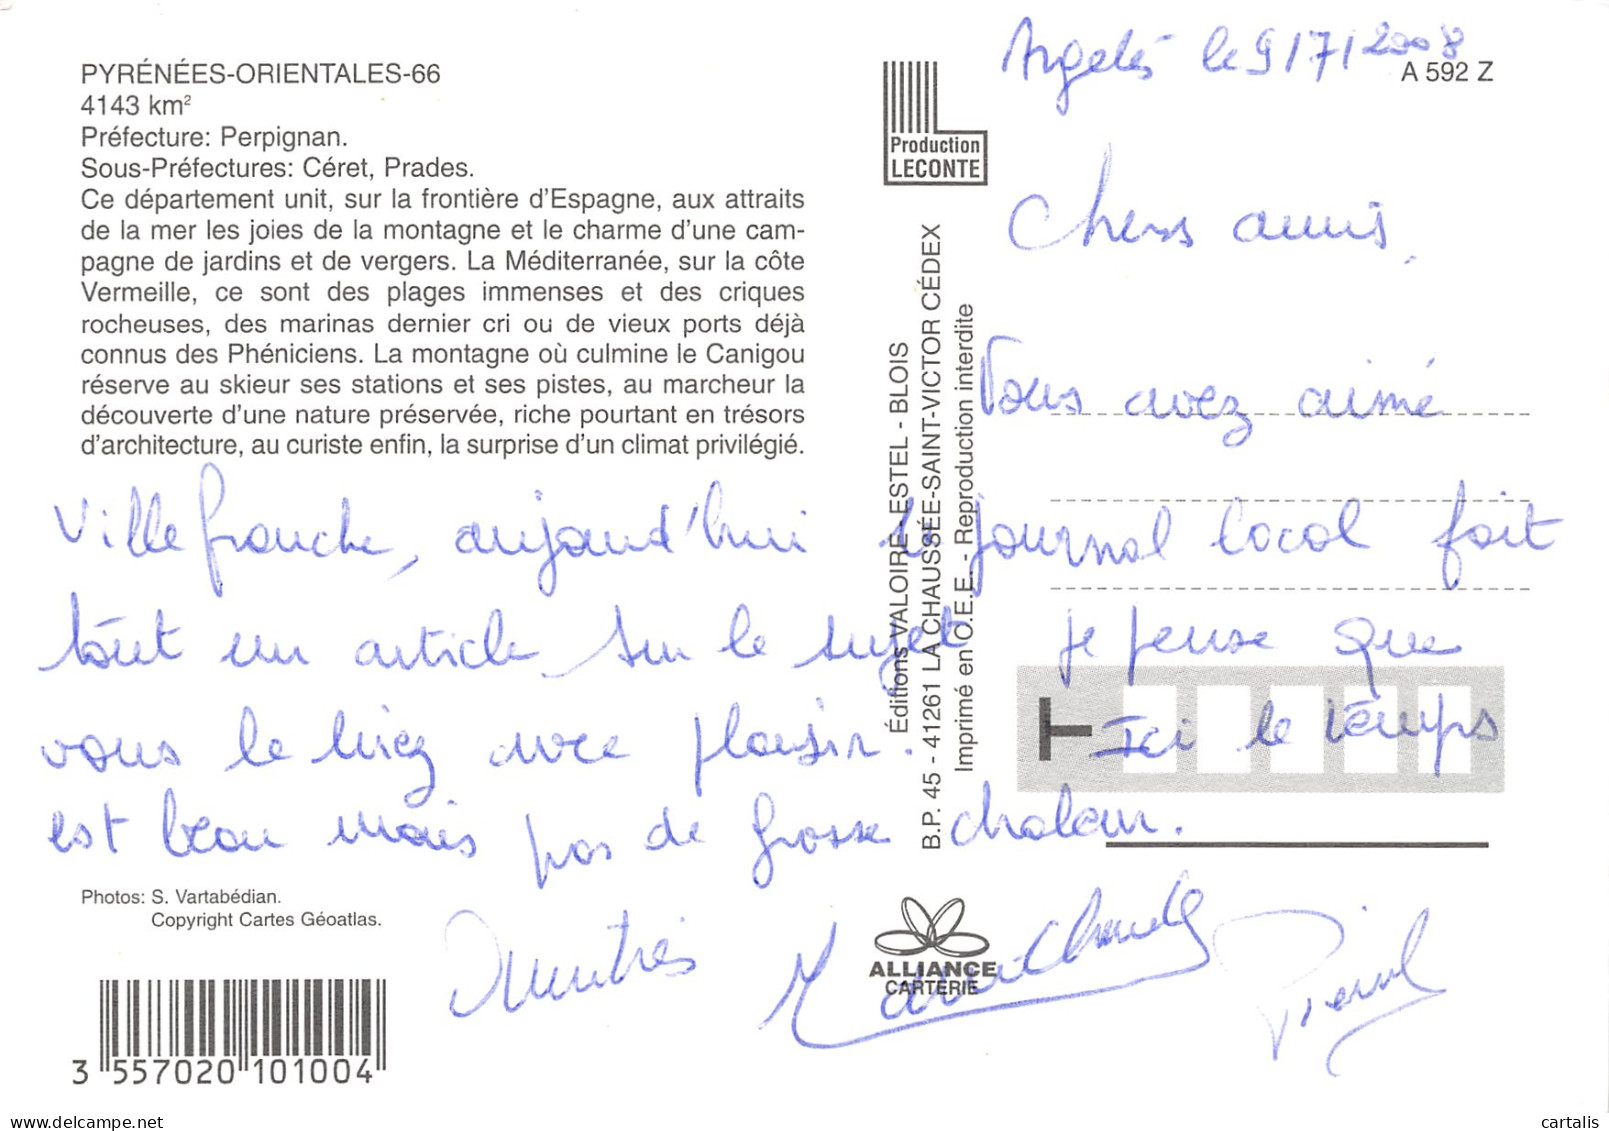 PYRÉNÉES-ORIENTALES-66
4143 km²
Préfecture: Perpignan.
Sous-Préfectures: Céret, Prades.
Ce département unit, sur la frontière d'Espagne, aux attraits
de la mer les joies de la montagne et le charme d'une cam-
pagne de jardins et de vergers. La Méditerranée, sur la côte
Vermeille, ce sont des plages immenses et des criques
rocheuses, des marinas dernier cri ou de vieux ports déjà
connus des Phéniciens. La montagne où culmine le Canigou
réserve au skieur ses stations et ses pistes, au marcheur la
découverte d'une nature préservée, riche pourtant en trésors
d'architecture, au curiste enfin, la surprise d'un climat privilégié.
Production
LECONTE
A 592 Z
Argelès le 9/7/2008
Chers amis,
Vous avez aimé
Villefranche, aujourd'hui le journal local fait
tout un article sur le sujet je pense que
vous le lirez avec plaisir. Ici le temps
est beau mais pas de grosse chaleur.
Amitiés
Pierrot
Éditions VALOIRE - ESTEL - BLOIS
B.P. 45 - 41261 LA CHAUSSÉE-SAINT-VICTOR CÉDEX
Imprimé en O.E.E. - Reproduction interdite
T
Photos: S. Vartabédian.
Copyright Cartes Géoatlas.
ALLIANCE
CARTERIE
3 557020 101004
https://www.delcampe.net
cartalis